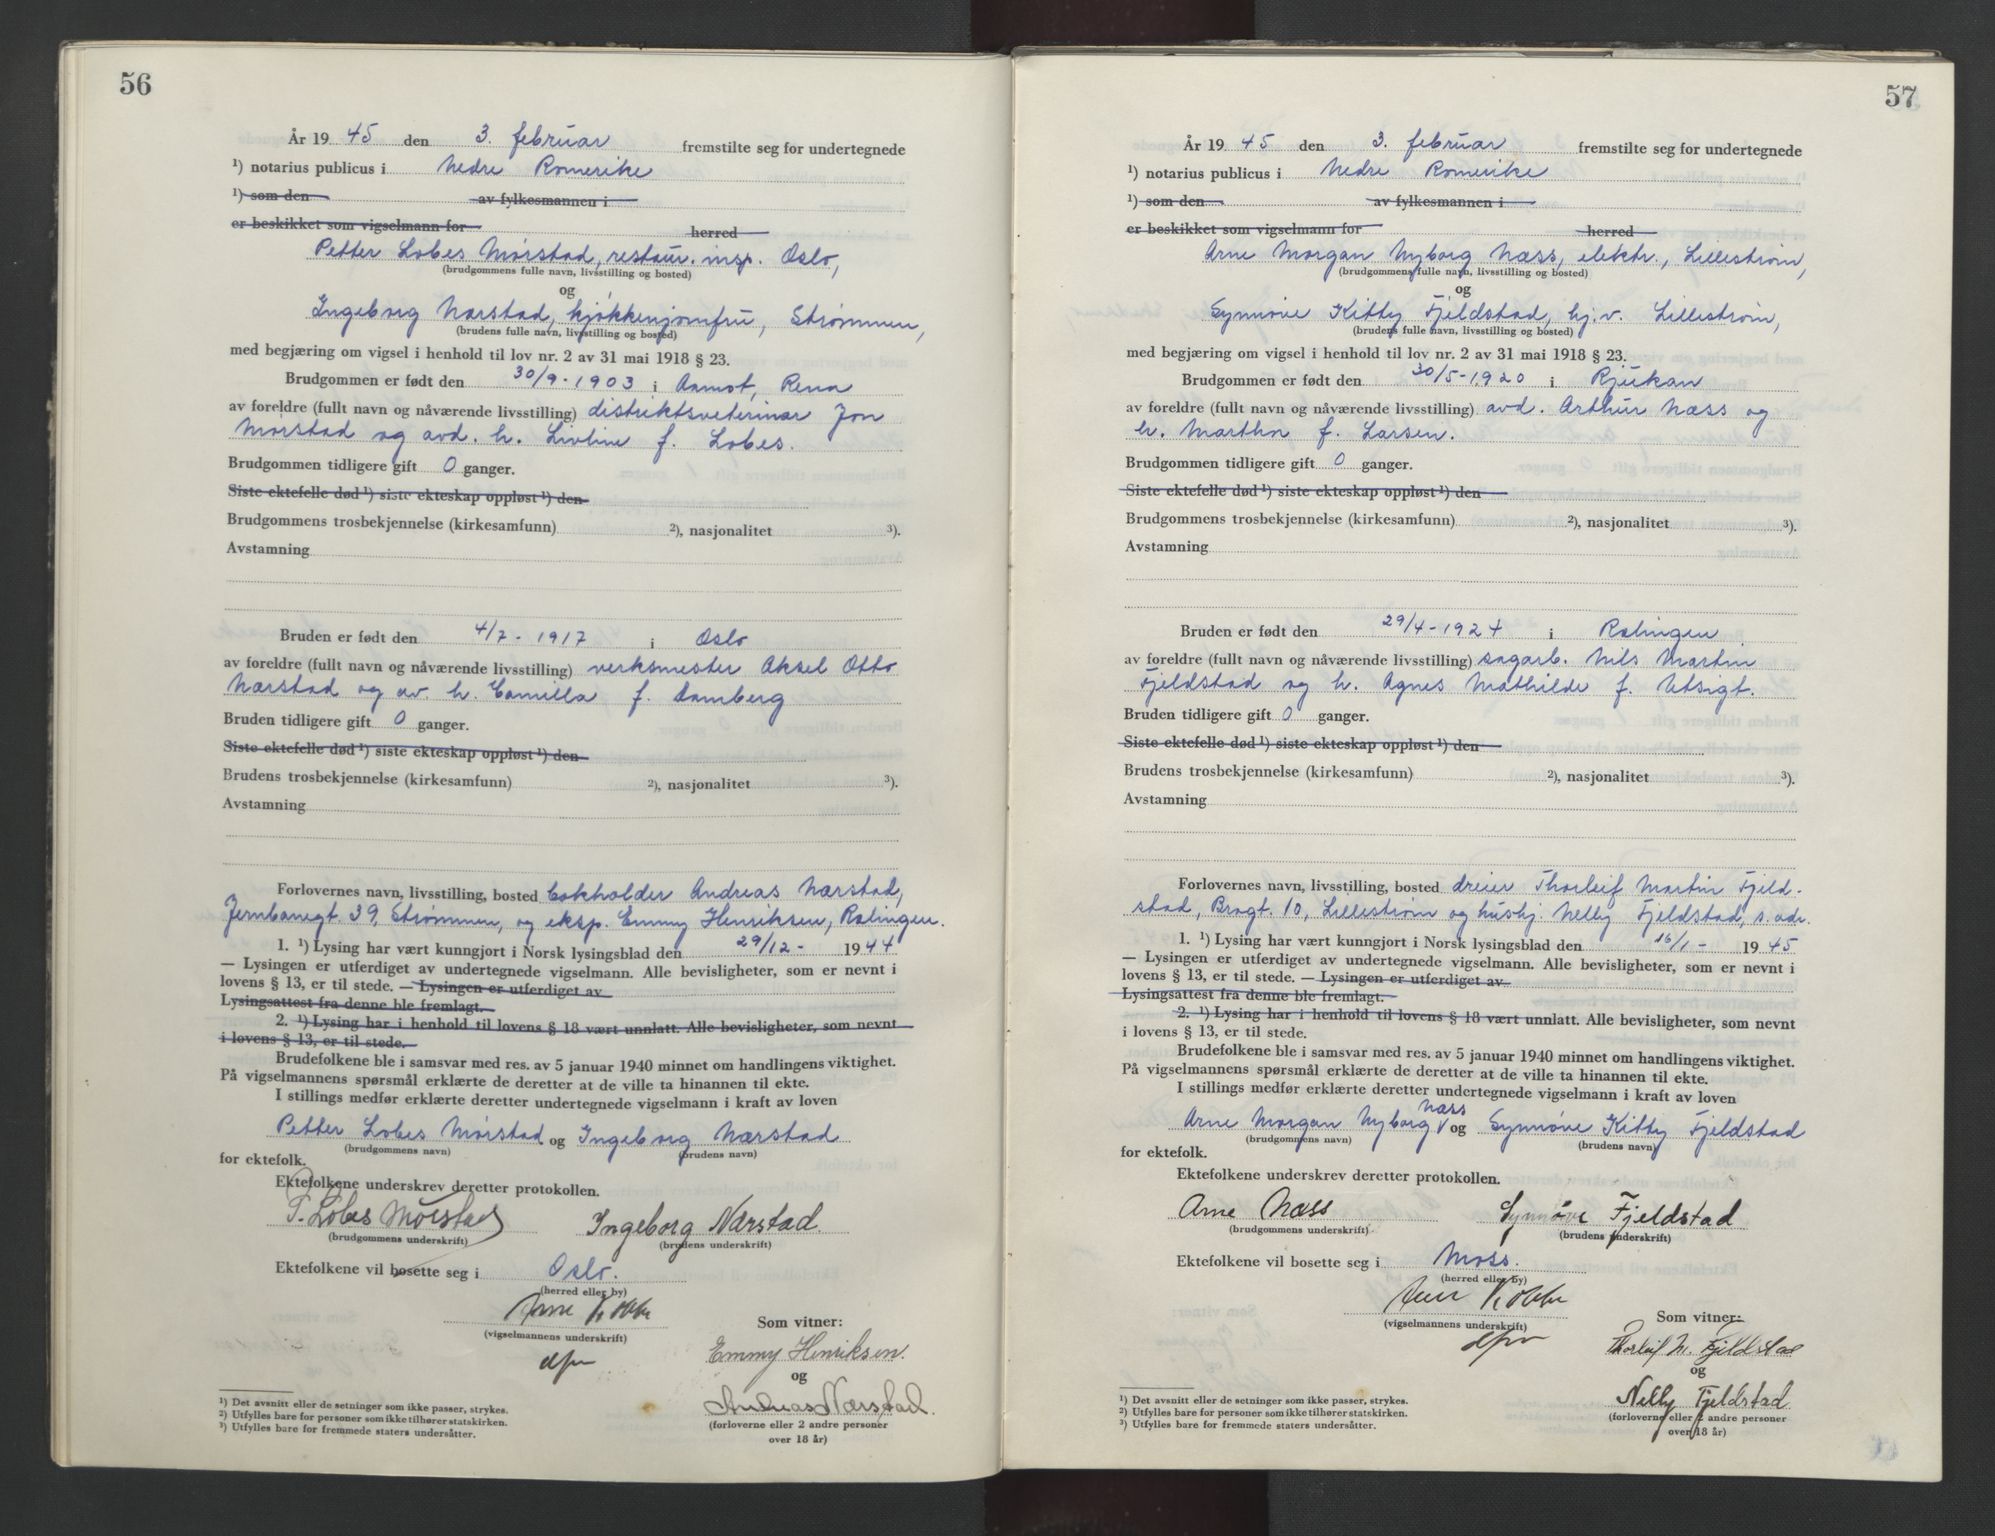 56
År 19 45 den 3. februar fremstilte seg for undertegnede
¹) notarius publicus i Nedre Romerike
¹) som den av fylkesmannen i
er beskikket som vigselmann for herred
Petter Lobes Mørstad, restaur. insp. Oslo,
(brudgommens fulle navn, livsstilling og bosted)
og
Ingeborg Nærstad, kjøkkenjomfru, Strømmen,
(brudens fulle navn, livsstilling og bosted)
med begjæring om vigsel i henhold til lov nr. 2 av 31 mai 1918 § 23.
Brudgommen er født den 30/9-1903 i Aamot, Rena
av foreldre (fullt navn og nåværende livsstilling) distriktsveterinær Jon
Mørstad og avd. h. Livline f. Lobes.
Brudgommen tidligere gift 0 ganger.
Siste ektefelle død ¹) siste ekteskap oppløst ¹) den
Brudgommens trosbekjennelse (kirkesamfunn) ²), nasjonalitet ³).
Avstamning
Bruden er født den 4/7-1917 i Oslo
av foreldre (fullt navn og nåværende livsstilling) verksmester Aksel Otto
Nærstad og av. h. Camilla f. Damberg
Bruden tidligere gift 0 ganger.
Siste ektefelle død ¹) siste ekteskap oppløst ¹) den
Brudens trosbekjennelse (kirkesamfunn) ²), nasjonalitet ³).
Avstamning
Forlovernes navn, livsstilling, bosted bokholder Andreas Nærstad,
Jernbanegt. 39, Strømmen, og eksp. Emmy Henriksen, Rælingen.
1. ¹) Lysing har vært kunngjort i Norsk lysingsblad den 29/12- 1944
— Lysingen er utferdiget av undertegnede vigselmann. Alle bevisligheter, som er nevnt i
lovens § 13, er til stede. — Lysingen er utferdiget av
Lysingsattest fra denne ble fremlagt.
2. ¹) Lysing har i henhold til lovens § 18 vært unnlatt. Alle bevisligheter, som nevnt
i lovens § 13, er til stede.
Brudefolkene ble i samsvar med res. av 5 januar 1940 minnet om handlingens viktighet.
På vigselmannens spørsmål erklærte de deretter at de ville ta hinannen til ekte.
I stillings medfør erklærte deretter undertegnede vigselmann i kraft av loven
Petter Lobes Mørstad og Ingeborg Nærstad
(brudgommens navn) (brudens navn)
for ektefolk.
Ektefolkene underskrev deretter protokollen.
P. Lobes Mørstad Ingeborg Nærstad.
(brudgommens underskrift) (brudens underskrift)
Ektefolkene vil bosette seg i Oslo.
(herred eller by)
Arne Kobbe
(vigselmannens underskrift)
dfm
Som vitner:
Emmy Henriksen.
og
Andreas Nærstad.
(forloverne eller 2 andre personer
over 18 år)
¹) Det avsnitt eller de setninger som ikke passer, strykes.
²) Utfylles bare for personer som ikke tilhører statskirken.
³) Utfylles bare for fremmede staters undersåtter.
57
År 19 45 den 3. februar fremstilte seg for undertegnede
¹) notarius publicus i Nedre Romerike
¹) som den av fylkesmannen i
er beskikket som vigselmann for herred
Arne Morgan Nyborg Næss, elektr., Lillestrøm,
(brudgommens fulle navn, livsstilling og bosted)
og
Synnøve Kitty Fjeldstad, hj.v. Lillestrøm,
(brudens fulle navn, livsstilling og bosted)
med begjæring om vigsel i henhold til lov nr. 2 av 31 mai 1918 § 23.
Brudgommen er født den 30/5-1920 i Rjukan
av foreldre (fullt navn og nåværende livsstilling) avd. Arthur Næss og
h. Martha f. Larsen.
Brudgommen tidligere gift 0 ganger.
Siste ektefelle død ¹) siste ekteskap oppløst ¹) den
Brudgommens trosbekjennelse (kirkesamfunn) ²), nasjonalitet ³).
Avstamning
Bruden er født den 29/4-1924 i Rælingen
av foreldre (fullt navn og nåværende livsstilling) sagarb. Nils Martin
Fjeldstad og h. Agnes Mathilde f. Utsigt.
Bruden tidligere gift 0 ganger.
Siste ektefelle død ¹) siste ekteskap oppløst ¹) den
Brudens trosbekjennelse (kirkesamfunn) ²), nasjonalitet ³).
Avstamning
Forlovernes navn, livsstilling, bosted dreier Thorleif Martin Fjeld-
stad, Bragt. 10, Lillestrøm og hushj. Nelly Fjeldstad, s. adr.
1. ¹) Lysing har vært kunngjort i Norsk lysingsblad den 16/1- 1945
— Lysingen er utferdiget av undertegnede vigselmann. Alle bevisligheter, som er nevnt i
lovens § 13, er til stede. — Lysingen er utferdiget av
Lysingsattest fra denne ble fremlagt.
2. ¹) Lysing har i henhold til lovens § 18 vært unnlatt. Alle bevisligheter, som nevnt
i lovens § 13, er til stede.
Brudefolkene ble i samsvar med res. av 5 januar 1940 minnet om handlingens viktighet.
På vigselmannens spørsmål erklærte de deretter at de ville ta hinannen til ekte.
I stillings medfør erklærte deretter undertegnede vigselmann i kraft av loven
Arne Morgan Nyborg Næss og Synnøve Kitty Fjeldstad
(brudgommens navn) (brudens navn)
for ektefolk.
Ektefolkene underskrev deretter protokollen.
Arne Næss Synnøve Fjeldstad
(brudgommens underskrift) (brudens underskrift)
Ektefolkene vil bosette seg i Moss.
(herred eller by)
Arne Kobbe
(vigselmannens underskrift)
dfm
Som vitner:
Thorleif M. Fjeldstad
og
Nelly Fjeldstad
(forloverne eller 2 andre personer
over 18 år)
¹) Det avsnitt eller de setninger som ikke passer, strykes.
²) Utfylles bare for personer som ikke tilhører statskirken.
³) Utfylles bare for fremmede staters undersåtter.